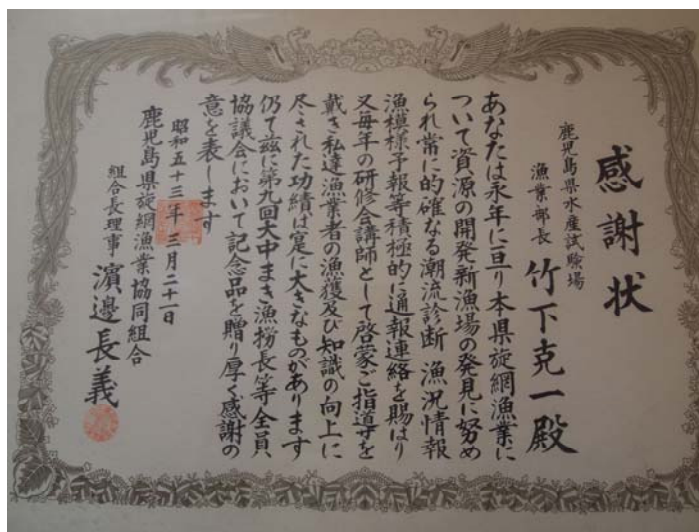 感謝状
鹿児島県水産試験場
漁業部長 竹下克一殿
あなたは永年に亘り本県旋網漁業に
ついて資源の開発新漁場の発見に努め
られ常に的確なる潮流診断 漁況情報
漁模様予報等積極的に通報連絡を賜はり
又毎年の研修会講師として啓蒙ご指導を
戴き私達漁業者の漁獲及び知識の向上に
尽された功績は寔に大きなものがあります
仍て茲に第九回大中まき漁撈長等全員
協議会において記念品を贈り厚く感謝の
意を表します
昭和五十三年三月二十一日
鹿児島県旋網漁業協同組合
組合長理事 濵邊長義